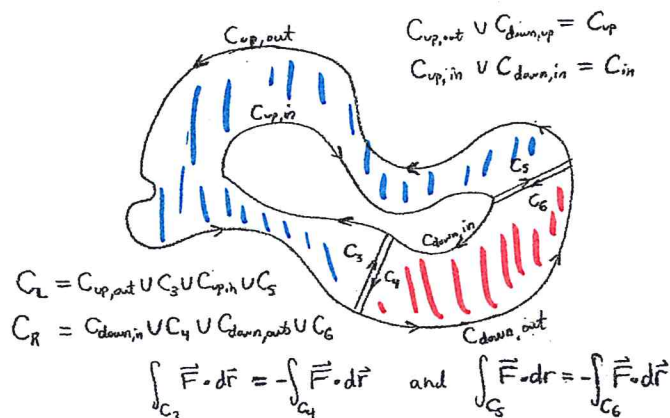 C_up,out
C_up,out ∪ C_down,up = C_up
C_up,in ∪ C_down,in = C_in
C_up,in
C_5
C_6
C_down,in
C_3
C_4
C_L = C_up,out ∪ C_3 ∪ C_up,in ∪ C_5
C_R = C_down,in ∪ C_4 ∪ C_down,out ∪ C_6
C_down,out
∫_C_3 F⃗·dr⃗ = -∫_C_4 F⃗·dr⃗ and ∫_C_5 F⃗·dr = -∫_C_6 F⃗·dr⃗